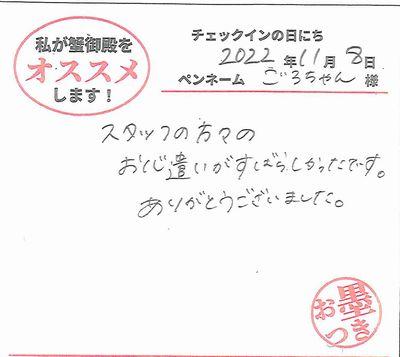 私が蟹御殿を
オススメ
します!
チェックインの日にち
2022年11月8日
ペンネーム ごろちゃん 様
スタッフの方々の
お心遣いがすばらしかったです。
ありがとうございました。
お墨つき